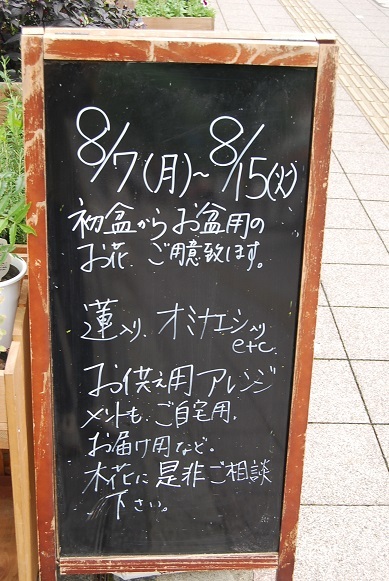 8/7(月)~8/15(火)
初盆からお盆用の
お花 ご用意致します。
蓮入り、オミナエシ入り
etc
お供え用アレンジ
メントも、ご自宅用、
お届け用など。
木花に是非ご相談
下さい。